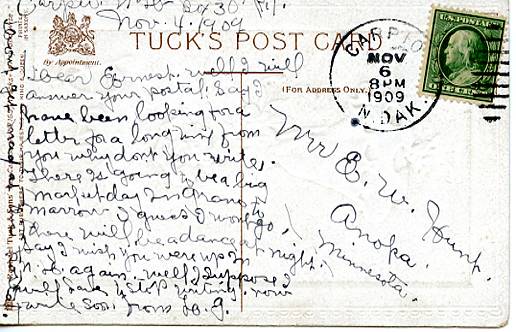 Carpio N. D.
Nov. 4. 1909
TUCK'S POST CARD
By Appointment.
(FOR ADDRESS ONLY.)
CARPIO
NOV
6
8 PM
1909
N. DAK.
U.S. POSTAGE
ONE CENT
Dear Earnest. well I will
answer your postal. Say I
have been looking for a
letter for a long time from
you why don't you write,
There is going to be a big
market day in Grano to
marrow I guess I won't go,
there will be a dance at night.
Say I wish you were up in
N. D. again. well I suppose I
will have to stop writing now
write soon from
Mr E. W. Hunt.
Anoka.
Minnesota.